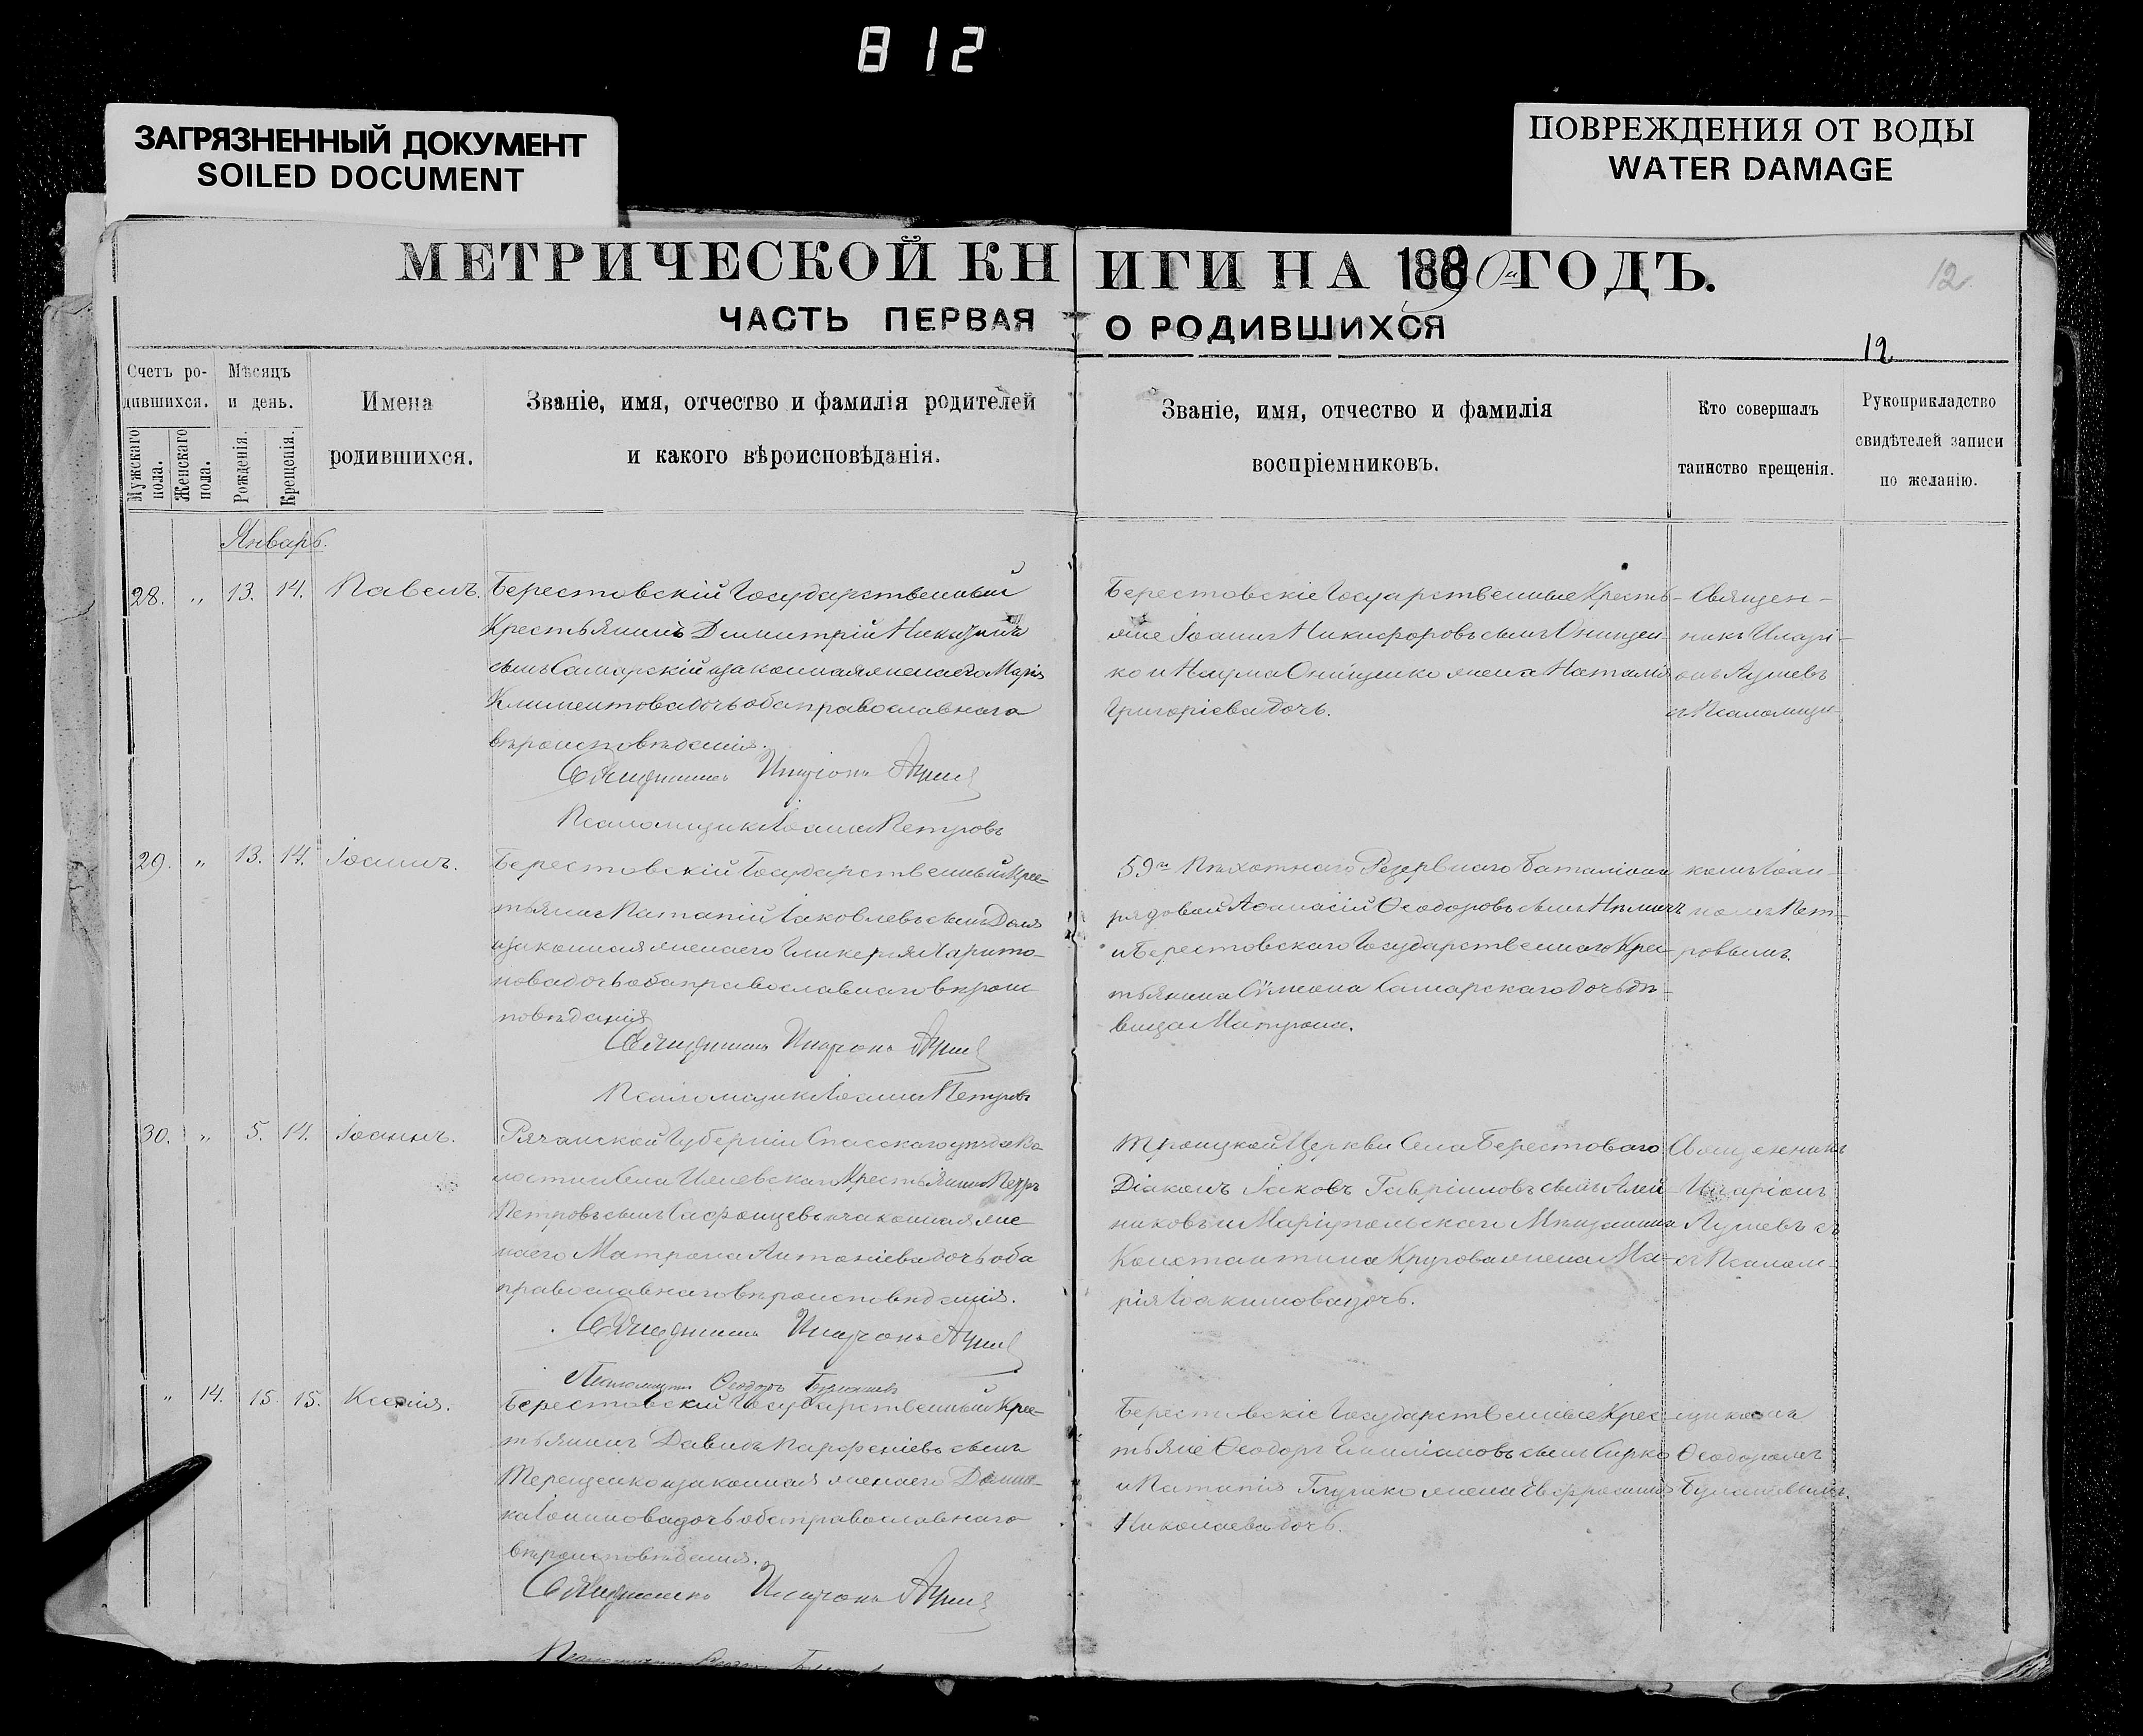 812
ЗАГРЯЗНЕННЫЙ ДОКУМЕНТ
SOILED DOCUMENT
ПОВРЕЖДЕНИЯ ОТ ВОДЫ
WATER DAMAGE
МЕТРИЧЕСКОЙ КНИГИ НА 1890 ГОДЪ.
12
ЧАСТЬ ПЕРВАЯ О РОДИВШИХСЯ
12
Счетъ ро-
дившихся.
Мужскаго пола.
Женскаго пола.
Мѣсяцъ
и день.
Рожденія.
Крещенія.
Имена
родившихся.
Званіе, имя, отчество и фамилія родителей
и какого вѣроисповѣданія.
Званіе, имя, отчество и фамилія
воспріемниковъ.
Кто совершалъ
таинство крещенія.
Рукоприкладство
свидѣтелей записи
по желанію.
Январь.
28. „ 13. 14. Павелъ.
Берестовскій Государственный
Крестьянинъ Димитрій
сынъ Самарскій и законная жена его Марія
Климентова дочь оба православнаго
вѣроисповѣданія.
Священникъ Иларіонъ
Псаломщикъ Іоаннъ Петровъ
Берестовскіе Государственные Кресть-
яне Іоаннъ Никифоровъ сынъ Онищен-
ко и Наума Онищенко жена Наталія
Григоріева дочь.
Священ-
никъ Иларі-
онъ
съ Псаломщи-
29. „ 13. 14. Іоаннъ.
Берестовскій Государственный Крес-
тьянинъ Іаковлевъ сынъ Доля
и законная жена его Гликерія Харито-
нова дочь оба православнаго вѣроис-
повѣданія
Священникъ Иларіонъ
Псаломщикъ Іоаннъ Петровъ
59го Пѣхотнаго Резервнаго Баталіона
рядовой Аѳанасій Ѳеодоровъ сынъ
и Берестовскаго Государственнаго Крес-
тьянина Сѵмеона Самарскаго дочь дѣ-
вица Матрона.
комъ Іоан-
номъ Пет-
ровымъ.
30. „ 5. 14. Іоаннъ.
Рязанской Губерніи Спасскаго уѣзда Во-
лости Села Крестьянинъ Петръ
Петровъ сынъ и законная же-
на его Матрона Антоніева дочь оба
православнаго вѣроисповѣданія.
Священникъ Иларіонъ
Псаломщикъ Ѳеодоръ
Троицкой Церкви Села Берестоваго
Діаконъ Іаковъ Гавріиловъ сынъ
и Маріупольскаго Мѣщанина
Константина Круговая жена Ма-
рія Іоакимова дочь.
Священникъ
Иларіонъ
съ Псалом-
„ 14. 15. 15. Ксенія.
Берестовскій Государственный Крес-
тьянинъ Давидъ Парфеніевъ сынъ
Терещенко и законная жена его Домни-
кія дочь оба православнаго
вѣроисповѣданія.
Священникъ Иларіонъ
Псаломщикъ Ѳеодоръ
Берестовскіе Государственные Крес-
тьяне Ѳеодоръ Емиліановъ сынъ Сирко
и Глушко жена Евфросинія
Николаева дочь.
щикомъ
Ѳеодоромъ